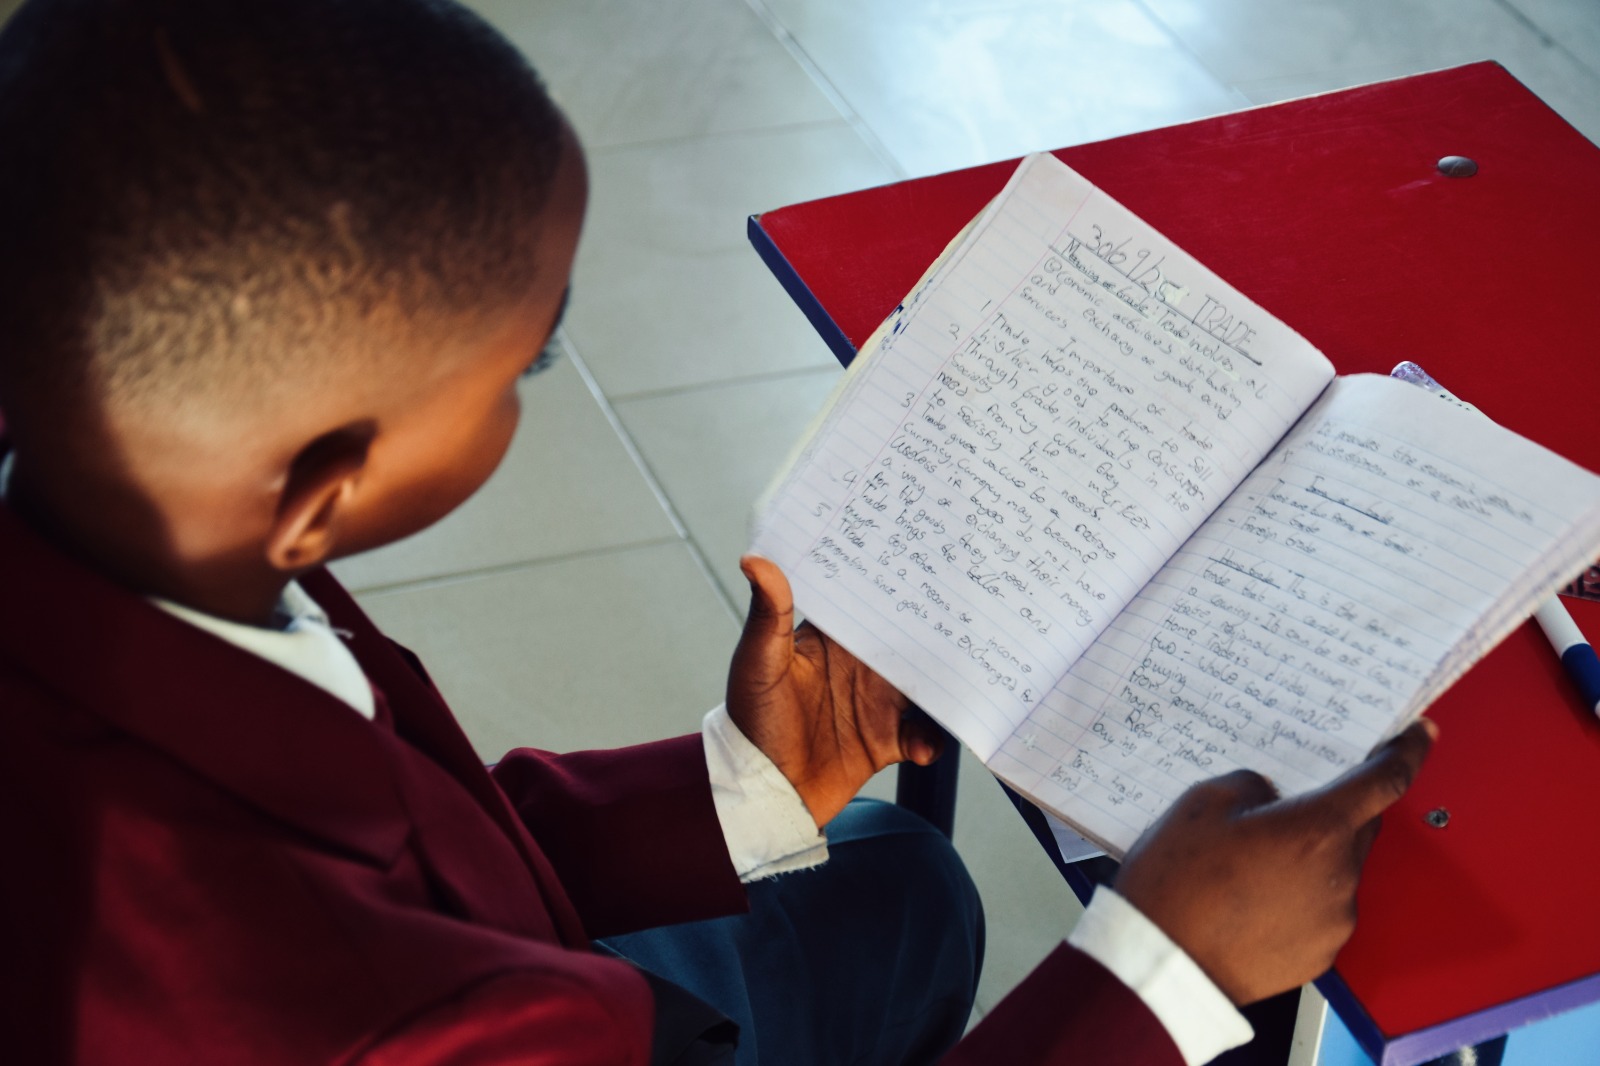 30/6 9/25 TRADE
Meaning of trade: Trade involves al
economic activities distribution
and exchang of goods and
Services
Importance of trade
1 Trade helps the producer to Sell
his/her good to the Consumer
2 Through trade, individuals in the
society buy what they
need from the market
to Satisfy their needs.
3 Trade gives value to a nations
currency. Currency may become
Useless if buyers do not have
a way of exchanging their money
for the goods they need.
4 Trade brings the Seller and
buyer together
5 Trade is a means of income
generation since goods are exchanged for
money.
It provides the economic
and development of a
There are two forms of trade:
- Home trade
- Foreign trade
Home trade: This is the form of
trade that is carried out within
a country. It can be at local,
state, regional or national level.
Home Trade is divided into
two:- Whole Sale:
buying in large quantities
from producers or
manufacturers.
Retail trade
buying in
Foreign trade
kind of